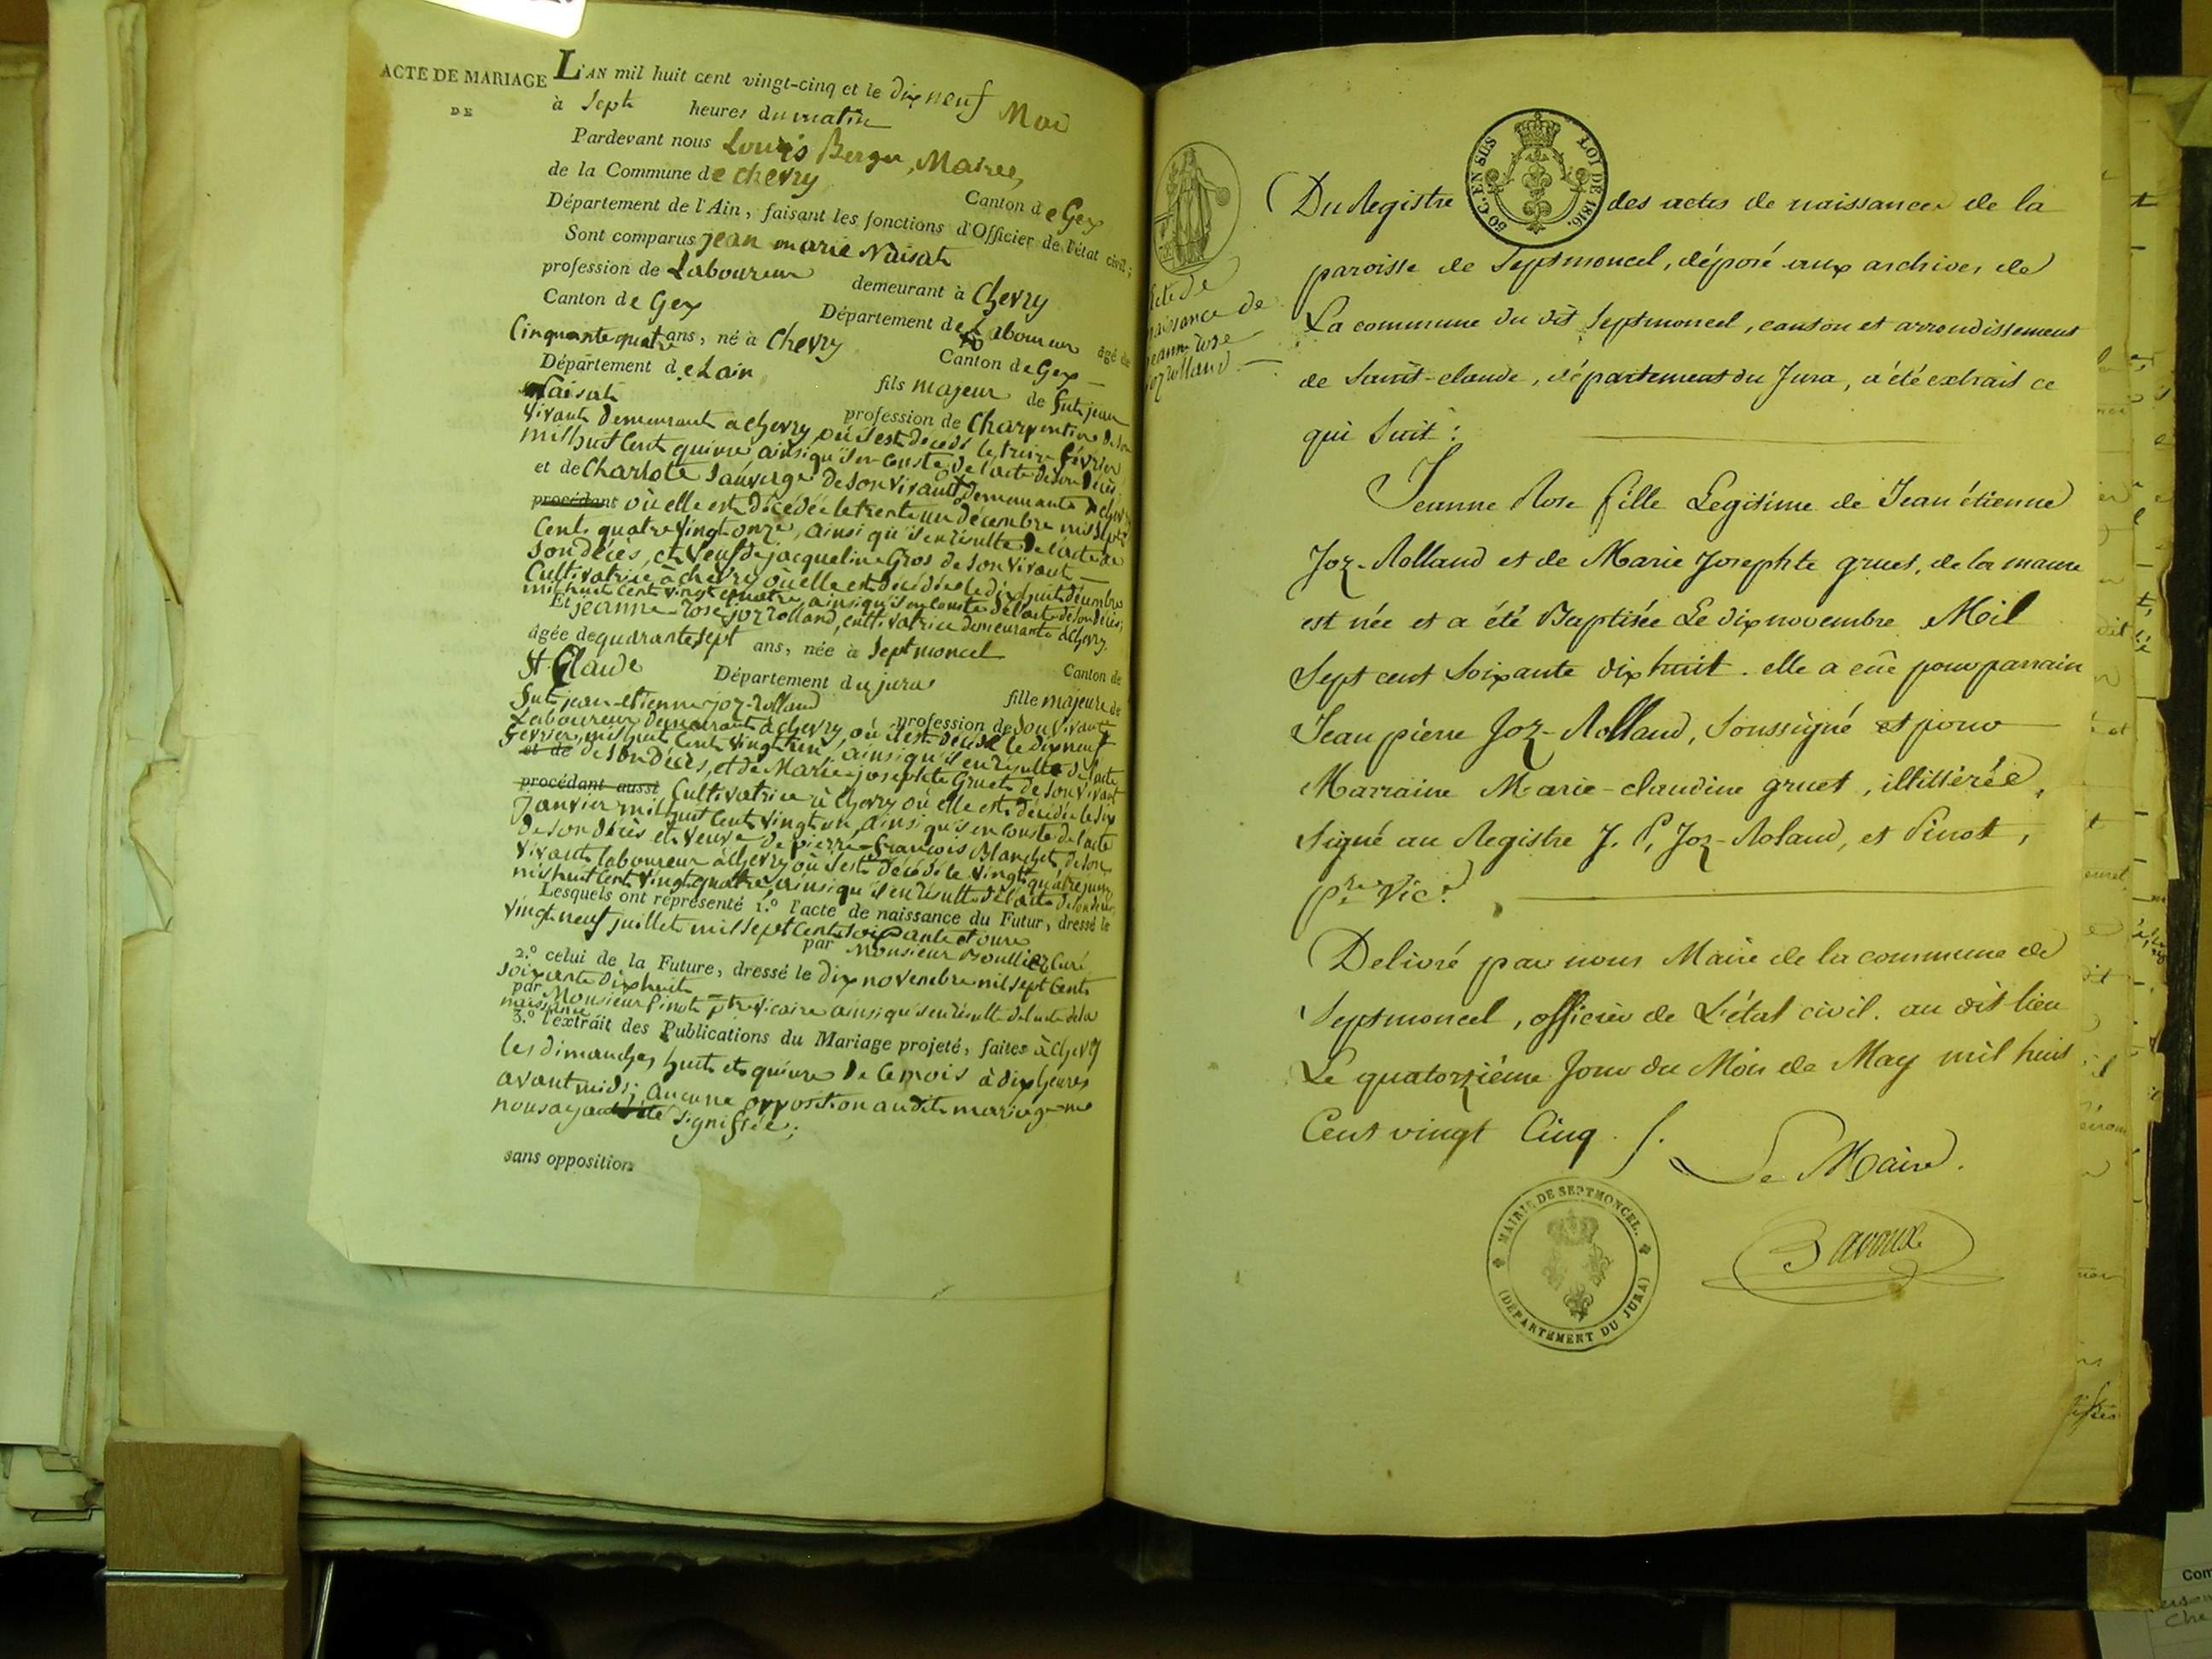 ACTE DE MARIAGE
DE
L'AN mil huit cent vingt-cinq et le dix neuf Mai
à sept heures du matin
Pardevant nous Louis Berger, Maire,
de la Commune de chevry Canton de Gex
Département de l'Ain, faisant les fonctions d'Officier de l'état civil;
Sont comparus jean marie Naisat
profession de Laboureur demeurant à Chevry
Canton de Gex Département de Laboureur agé de
Cinquante quatre ans, né à Chevry Canton de Gex
Département de Lain fils majeur de fut jean
Naisat profession de Charpentier de son
vivant demeurant a chevry, où il est décédé le treize février
mil huit Cent quinze ainsi qu'il en Conste de l'acte de son décès
et de Charlote Sauverge de son vivant demeurante a chevry
procédant où elle est décédée le trente un décembre mil sept
Cent quatre vingt onze, ainsi qu'il en résulte de l'acte de
son décès, et veuf de jacqueline Gros de son vivant
Cultivatrice à chevry où elle est décédée le dix huit décembre
mil huit Cent vingt quatre, ainsi qu'il en Conste de l'acte de son décès;
Et jeanne-rose joz rolland, cultivatrice demeurante à chevry,
agée de quarante sept ans, née à Septmoncel
St Claude Département du jura Canton de
fut jean-etienne joz-rolland fille majeure de
profession de son vivant
Laboureur demeurant à chevry, où il est décédé le dix neuf
février, mil huit Cent vingt un, ainsi qu'il en résulte de l'acte
et de de son décès, et de Marie josephte Gruet de son vivant
procédant aussi Cultivatrice à chevry où elle est décédée le dix
janvier mil huit Cent vingt un, ainsi qu'il en Conste de l'acte
de son décès et veuve de pierre-françois Blanchet de son
vivant laboureur à chevry où il est décédé le vingt quatre juin
mil huit Cent vingt quatre, ainsi qu'il en résulte de l'acte de son décès
Lesquels ont représenté 1.° l'acte de naissance du Futur, dressé le
vingt neuf juillet mil sept Cent soixante et onze
par Monsieur Curé
2.° celui de la Future, dressé le dix novembre mil sept Cent
soixante dix huit
par Monsieur Pinot ptre vicaire ainsi qu'il en résulte de l'acte de sa
naissance
3.° l'extrait des Publications du Mariage projeté, faites à chevry
les dimanches huit et quinze de Ce mois à dix heures
avant midi; aucune opposition audit mariage ne
nous ayant été signifiée;
sans opposition
Acte de
naissance de
jeanne rose
joz rolland.
50 C. EN SUS
LOI DE 1816.
Du Registre des actes de naissances de la
paroisse de Septmoncel, déposé aux archives de
La commune du dit Septmoncel, canton et arrondissement
de Saint-claude, département du Jura, a été extrait ce
qui suit:
Jeanne Rose fille Legitime de Jean étienne
Joz-Rolland et de Marie Josephte gruet, de la maure
est née et a été Baptisée Le dix novembre Mil
Sept cent soixante dix huit. elle a eüe pour parrain
Jean pierre Joz-Rolland, Soussigné et pour
Marraine Marie-claudine gruet, illittérée,
Signé au Registre J. P. Joz-Roland, et Pinot,
ptre Vic.e
Delivré par nous Maire de la commune de
Septmoncel, officier de L'état civil. au dit lieu
Le quatorzième Jour du Mois de May mil huit
Cent vingt Cinq.
Le Maire.
MAIRIE DE SEPTMONCEL.
(DÉPARTEMENT DU JURA)
Bavoux